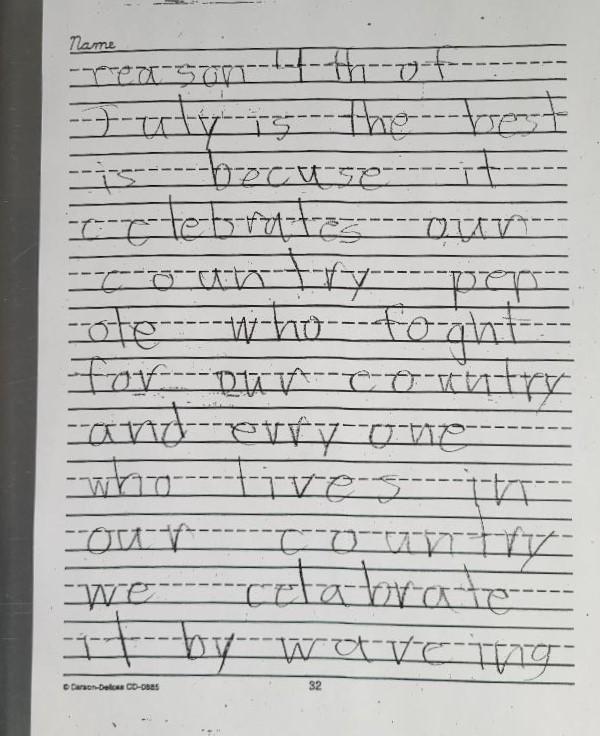 Name
reason 4th of
July is the best
is becuse it
celebrates our
country pep
ole who foght
for our country
and evry one
who lives in
our country
we celabrate
it by waveing
© Carson-Dellosa CD-0885 32